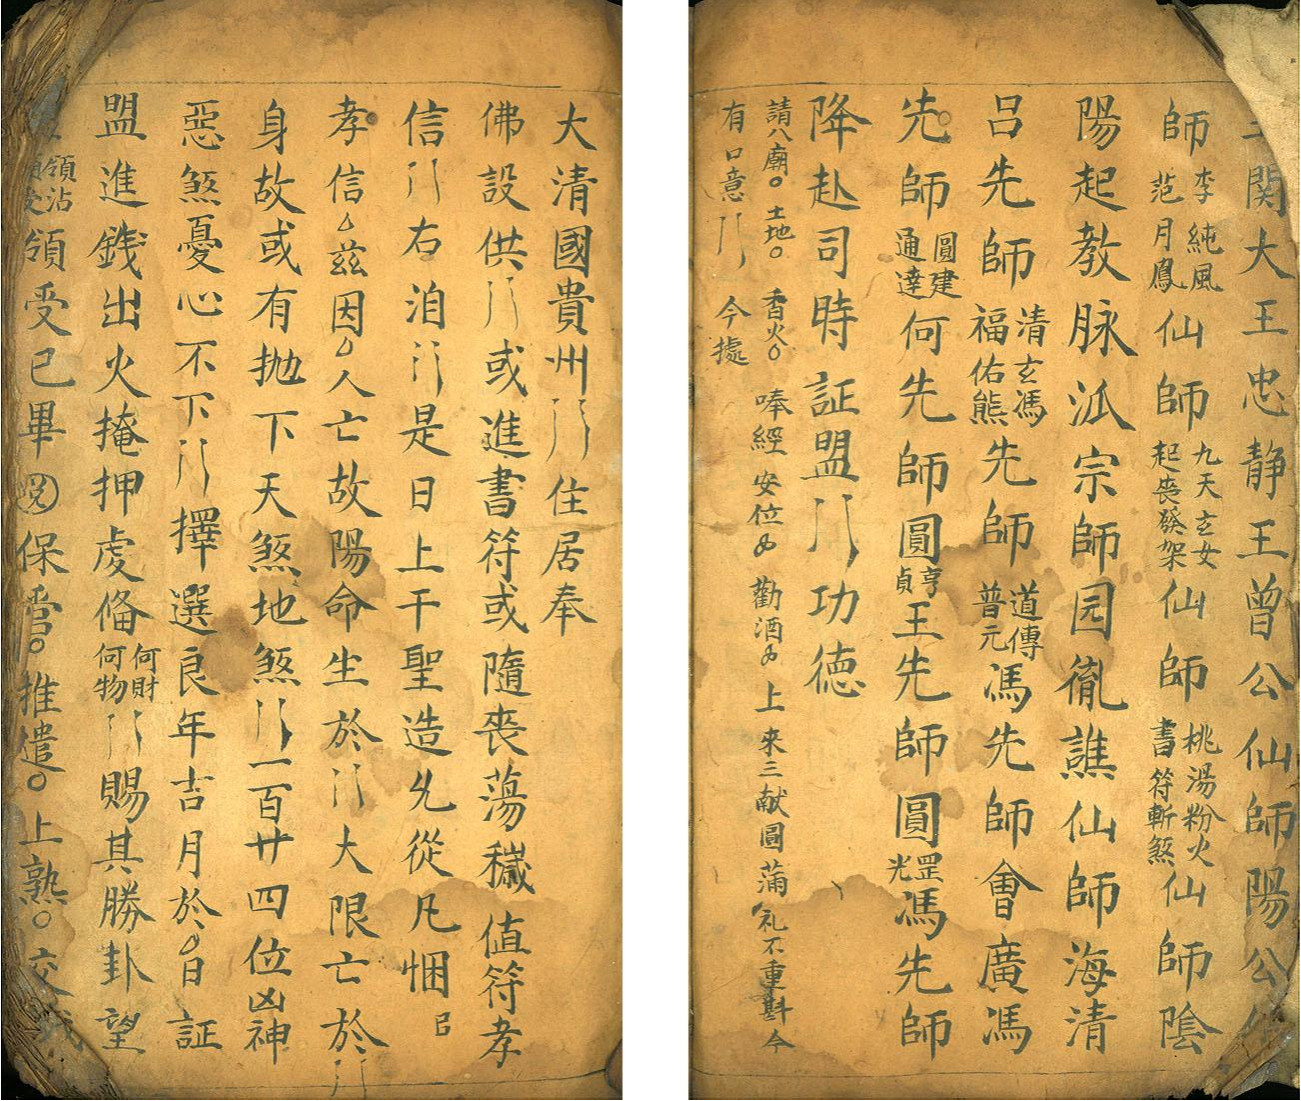 関大王忠静王曾公仙師陽公
師李純風范月鳳仙師九天玄女起喪發架仙師桃湯粉火書符斬煞仙師陰
陽起教脉派宗師园胤譙仙師海清
呂先師清玄馮福佑熊先師道傳普元馮先師會廣馮
先師圓建通達何先師圓亨貞王先師圓罡光馮先師
降赴司時証盟功徳
請八廟土地香火唪經安位勸酒上來三献圓蒲礼不重斟今
有口意今據
大清國貴州住居奉
佛設供或進書符或隨喪蕩穢值符孝
信右洎是日上干聖造凣從凡悃㠯
孝信兹因人亡故陽命生於大限亡於
身故或有抛下天煞地煞一百廿四位凶神
惡煞憂心不下擇選良年吉月於日証
盟進錢出火掩押虔俻何財何物賜其勝卦望
領沾領受領受已畢保香推遣上熟交